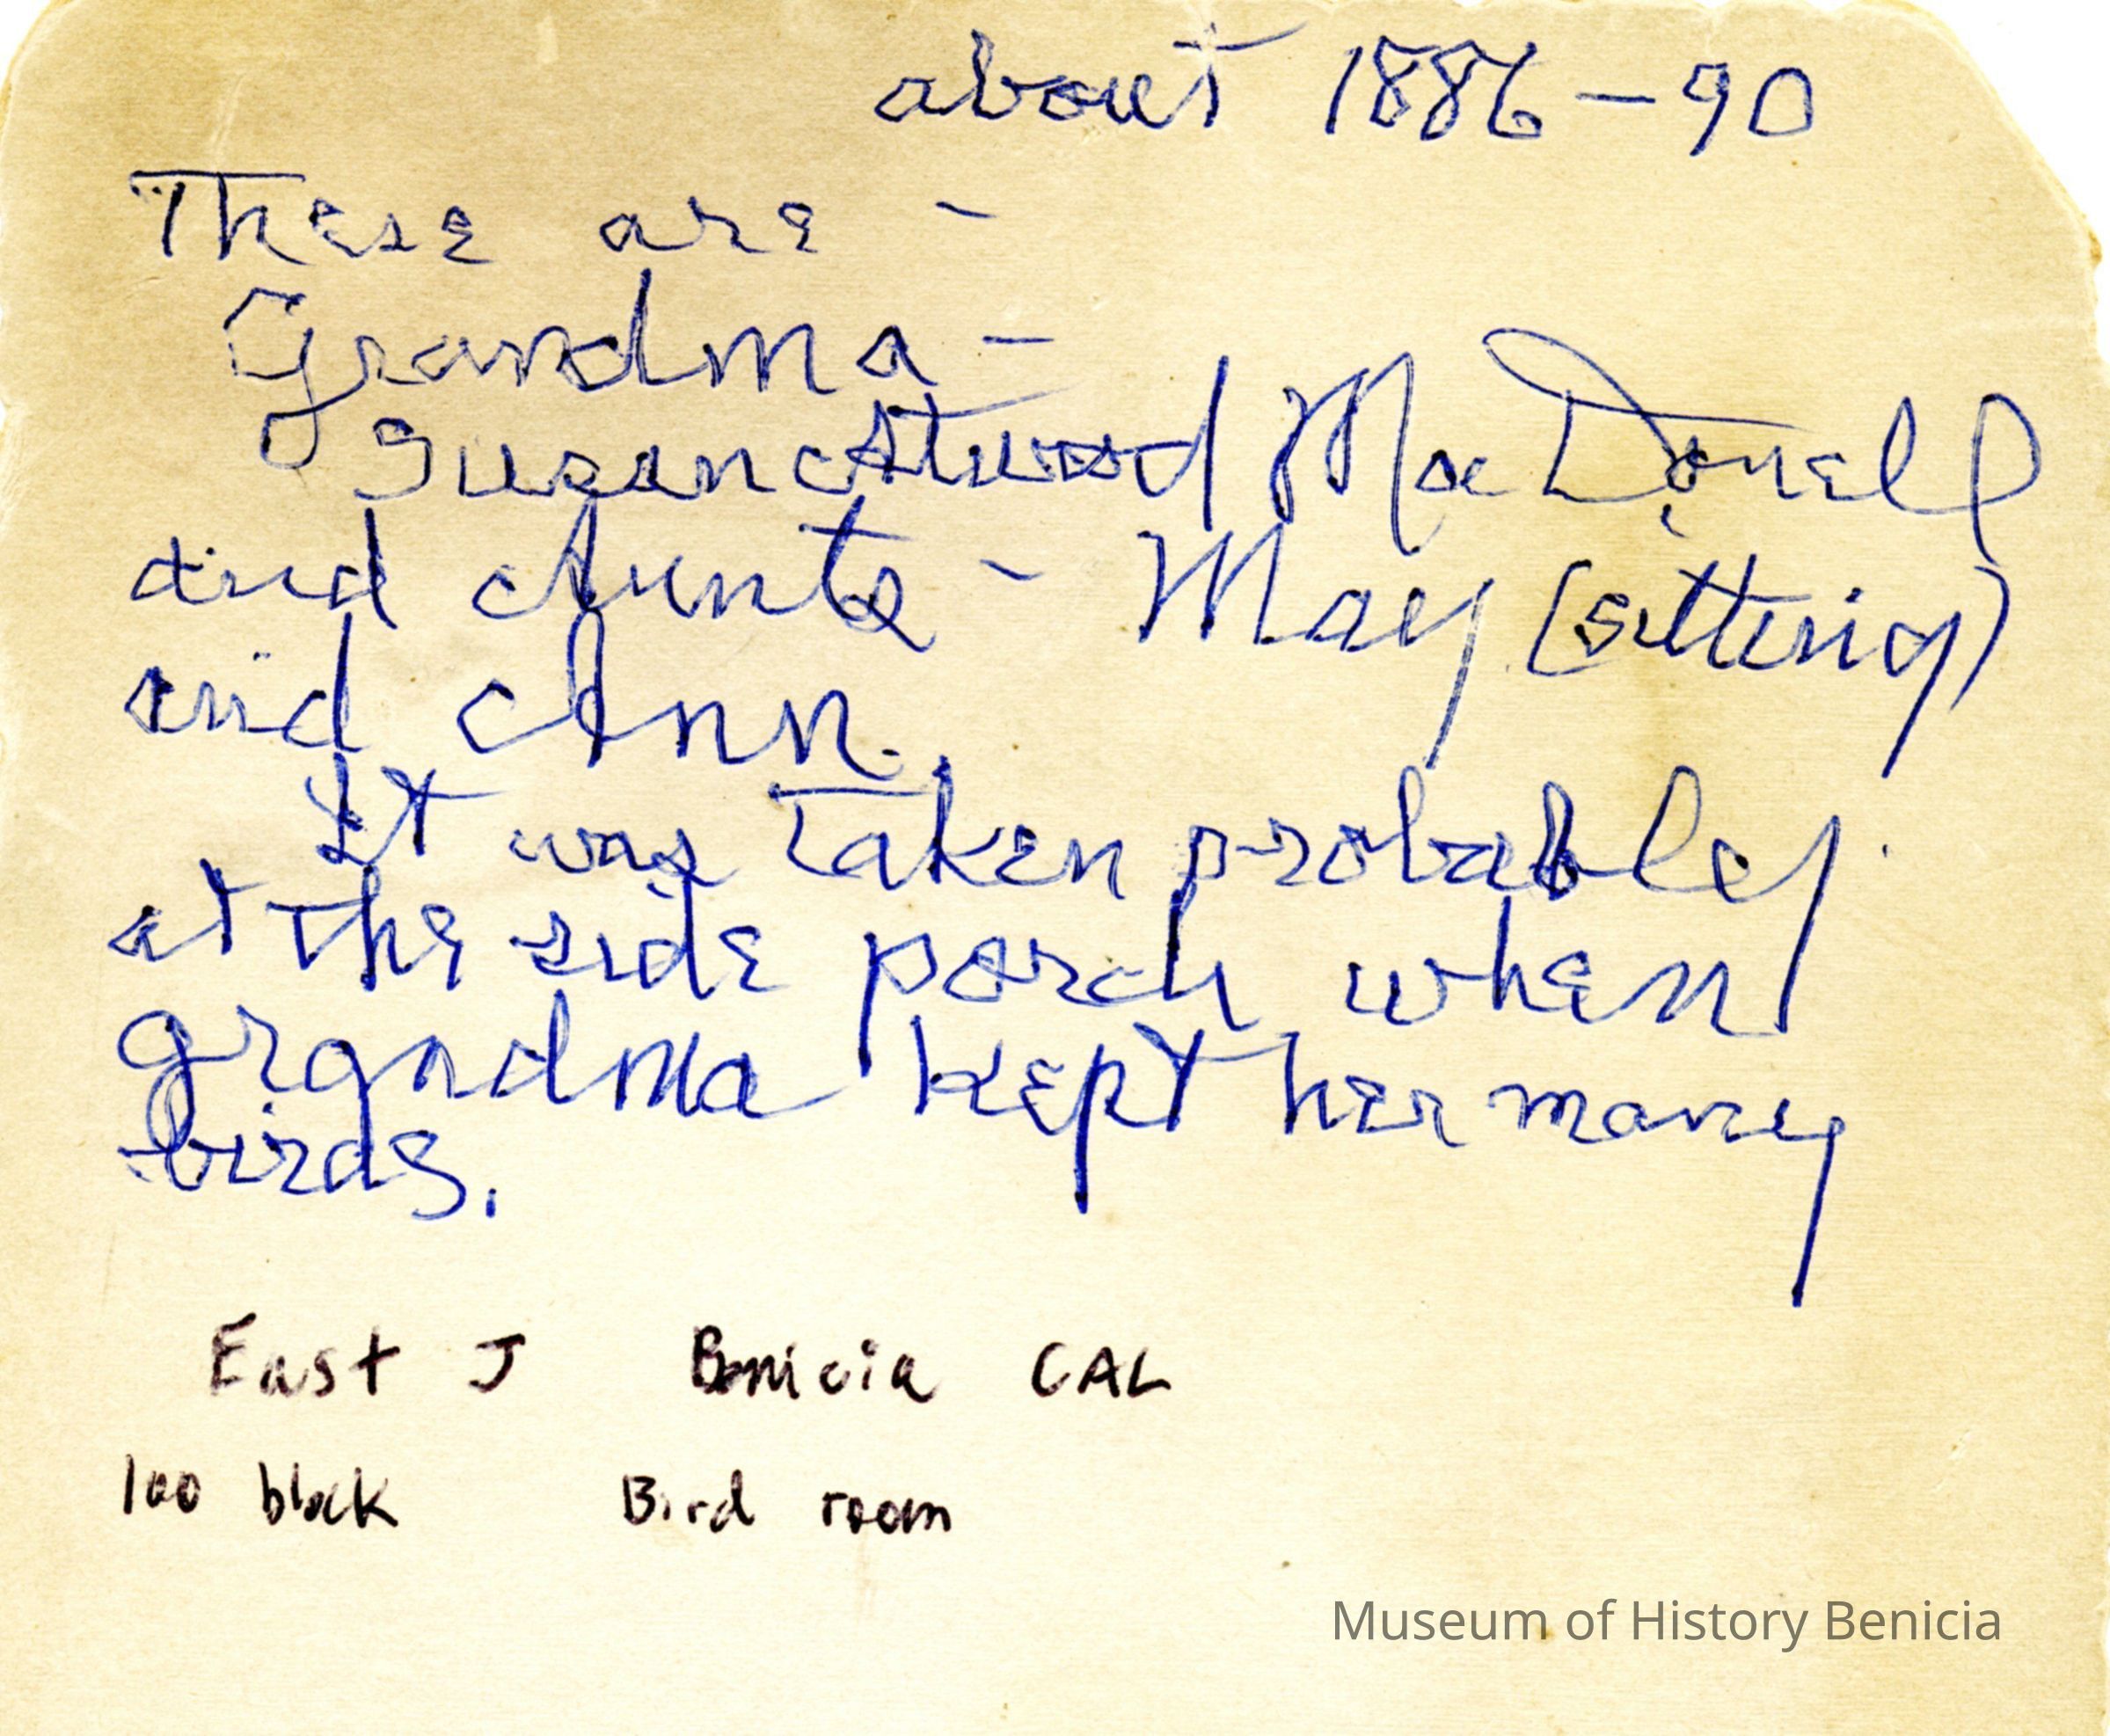 about 1886-90
These are -
Grandma -
Susan Atwood MacDonell
and Aunts - May (sitting)
and Ann.
It was taken probabley
at the side porch when
grandma kept her many
birds.
East J Benicia CAL
100 block Bird room
Museum of History Benicia